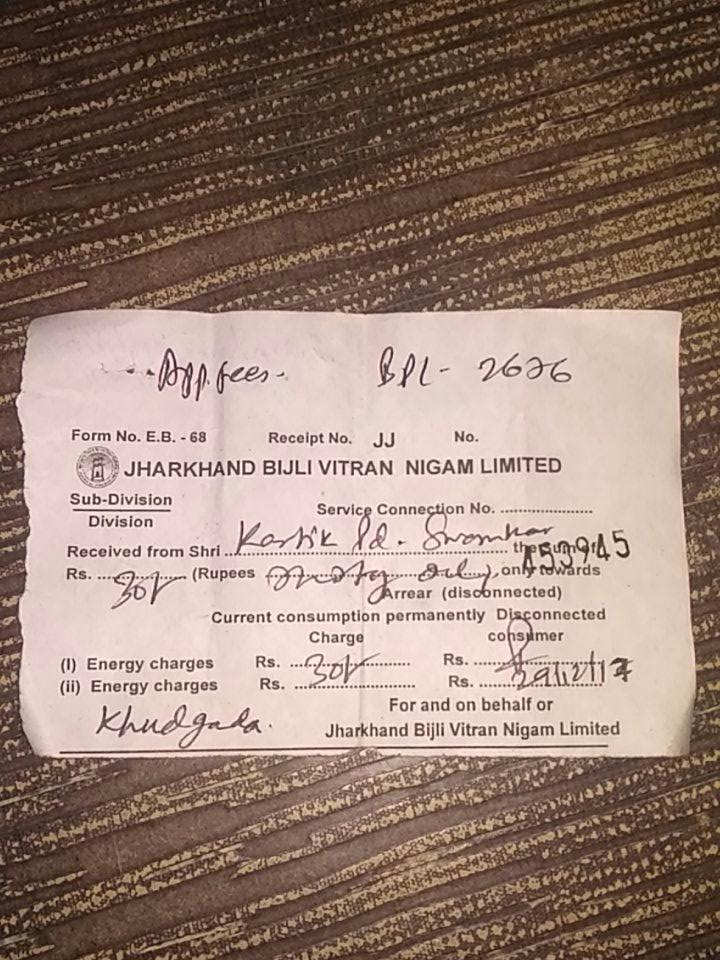 App. fees - BPL - 2626
Form No. E.B. - 68 Receipt No. JJ No.
JHARKHAND BIJLI VITRAN NIGAM LIMITED
Sub-Division
Division
Service Connection No. ......................
Received from Shri Kartik Pd. the sum of
A53945
Rs. 30/- (Rupees only, only towards
Arrear (disconnected)
Current consumption permanently Disconnected
Charge consumer
(I) Energy charges Rs. 30/- Rs. ......................
(ii) Energy charges Rs. ...................... Rs. ......................
Khudgada.
For and on behalf or
Jharkhand Bijli Vitran Nigam Limited